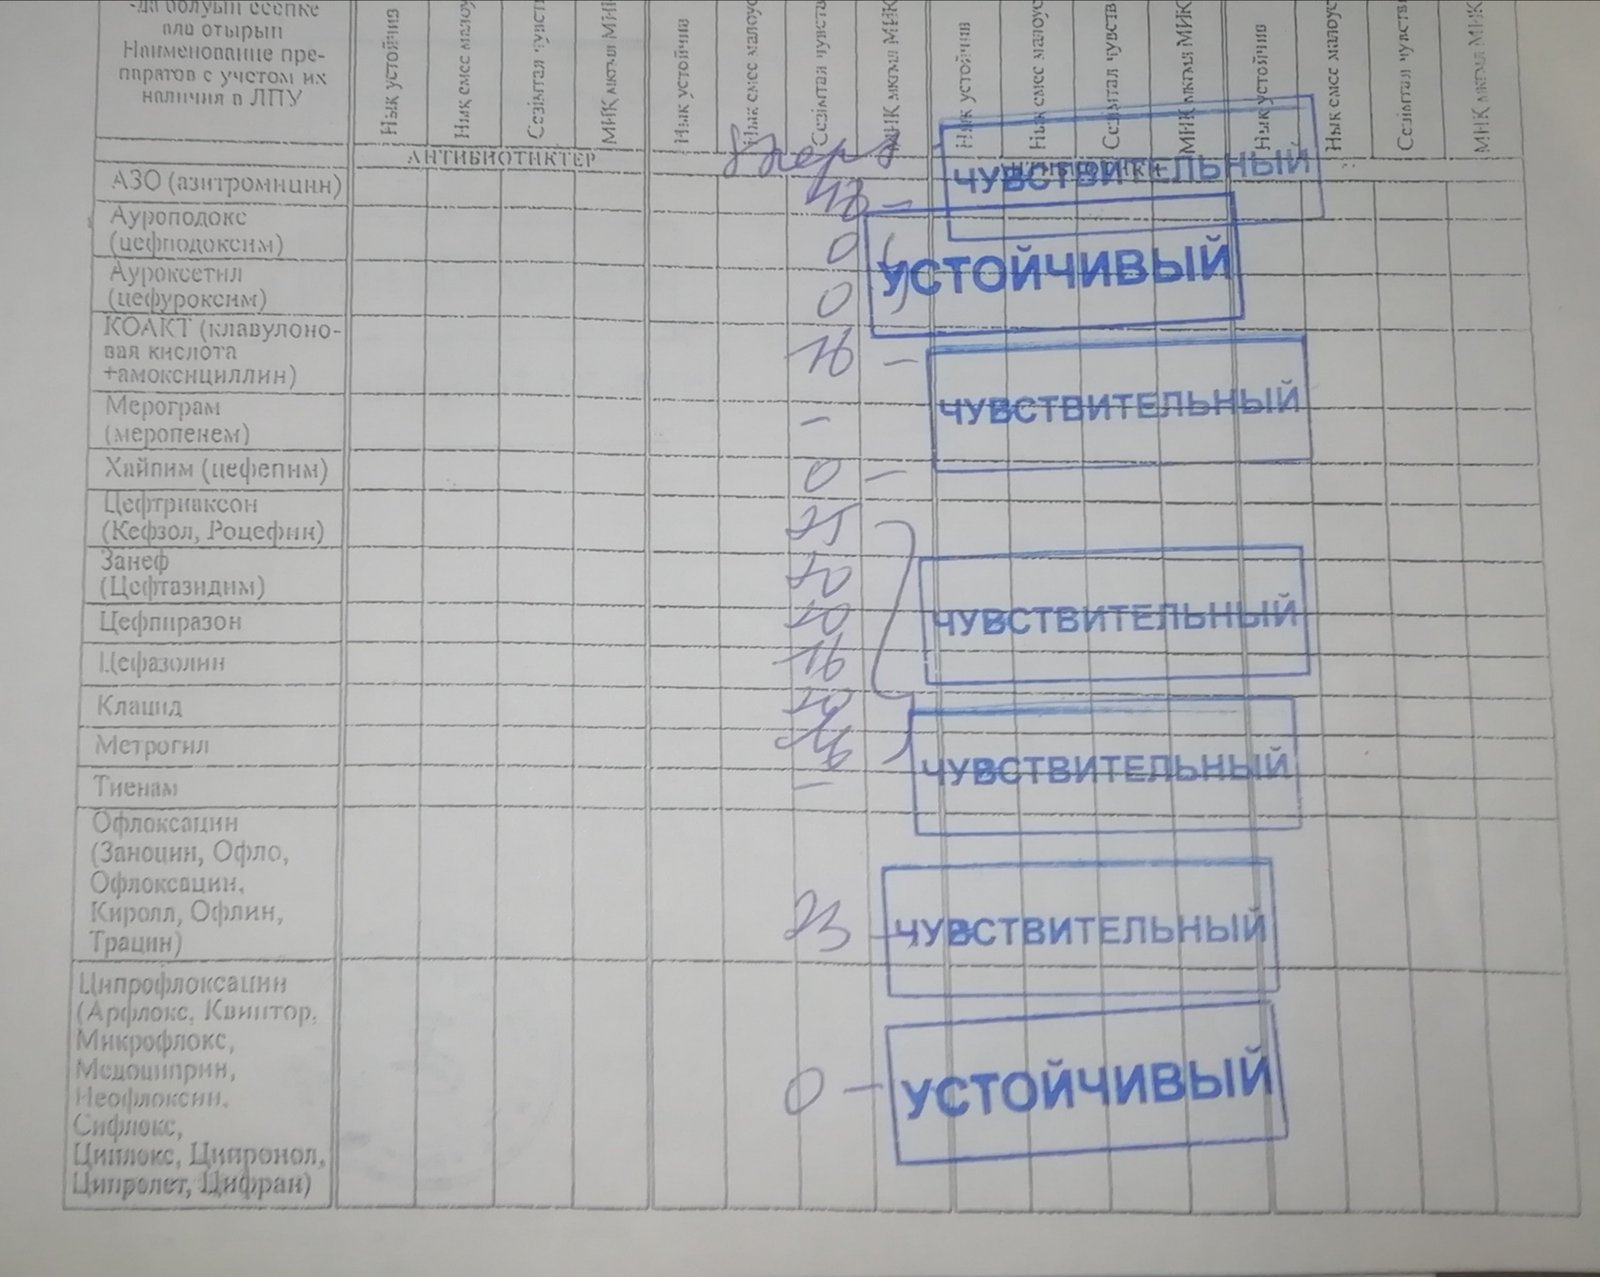 -да болуын
ала отырып
Наименование пре-
паратов с учетом их
наличия в ЛПУ
Нық устойчив
Нық емес малоус
Сезімтал чувст
МИК мкг/мл МИК
Нық устойчив
Нық емес малоус
Сезімтал чувств
МИК мкг/мл МИК
Нық устойчив
Нық емес малоус
Сезімтал чувств
МИК мкг/мл МИК
Нық устойчив
Нық емес малоус
Сезімтал чувств
МИК мкг/мл МИК
АНТИБИОТИКТЕР
АЗО (азитромицин) 18 – ЧУВСТВИТЕЛЬНЫЙ
Ауроподокс
(цефподоксим) 0
Ауроксетил
(цефуроксим) 0 УСТОЙЧИВЫЙ
КОАКТ (клавулоно-
вая кислота
+амоксициллин) 16 – ЧУВСТВИТЕЛЬНЫЙ
Мерограм
(меропенем) –
Хайпим (цефепим) 0 –
Цефтриаксон
(Кефзол, Роцефин) 25
Занеф
(Цефтазидим) 20
Цефпиразон 20 ЧУВСТВИТЕЛЬНЫЙ
Цефазолин 16
Клацид 20
Метрогил 16 ЧУВСТВИТЕЛЬНЫЙ
Тиенам –
Офлоксацин
(Заноцин, Офло,
Офлоксацин,
Киролл, Офлин,
Трацин) 23 – ЧУВСТВИТЕЛЬНЫЙ
Ципрофлоксацин
(Арфлокс, Квинтор,
Микрофлокс,
Медоциприн,
Неофлоксин,
Сифлокс,
Циплокс, Ципронол,
Ципролет, Цифран) 0 – УСТОЙЧИВЫЙ